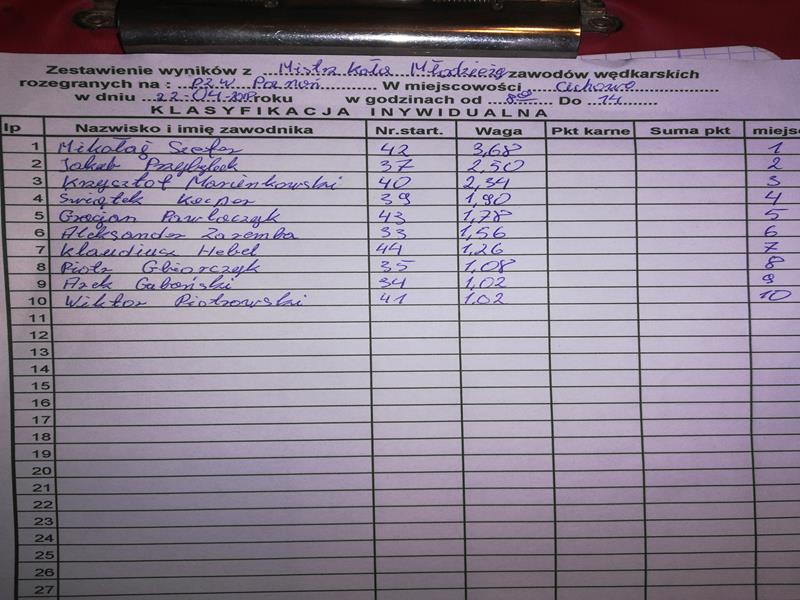 Zestawienie wyników z ...Mistrz Koła Młodzieży zawodów wędkarskich
rozegranych na : ..PZW Poznań........ W miejscowości ....Cichowo....
w dniu ..22-04-...roku w godzinach od ..8⁰⁰... Do ..14.....
KLASYFIKACJA INYWIDUALNA
lp Nazwisko i imię zawodnika Nr.start. Waga Pkt karne Suma pkt miejsc
1 Mikołaj 42 3,68 1
2 Jakub Przybyłek 37 2,50 2
3 Krzysztof Marienkowski 40 2,34 3
4 Świątek Kacper 39 1,90 4
5 Gracjan Pawlaczyk 43 1,78 5
6 Aleksander Zaremba 33 1,56 6
7 Klaudiusz Hebel 44 1,26 7
8 Piotr 35 1,08 8
9 Arek 34 1,02 9
10 Wiktor Piotrowski 41 1,02 10
11
12
13
14
15
16
17
18
19
20
21
22
23
24
25
26
27